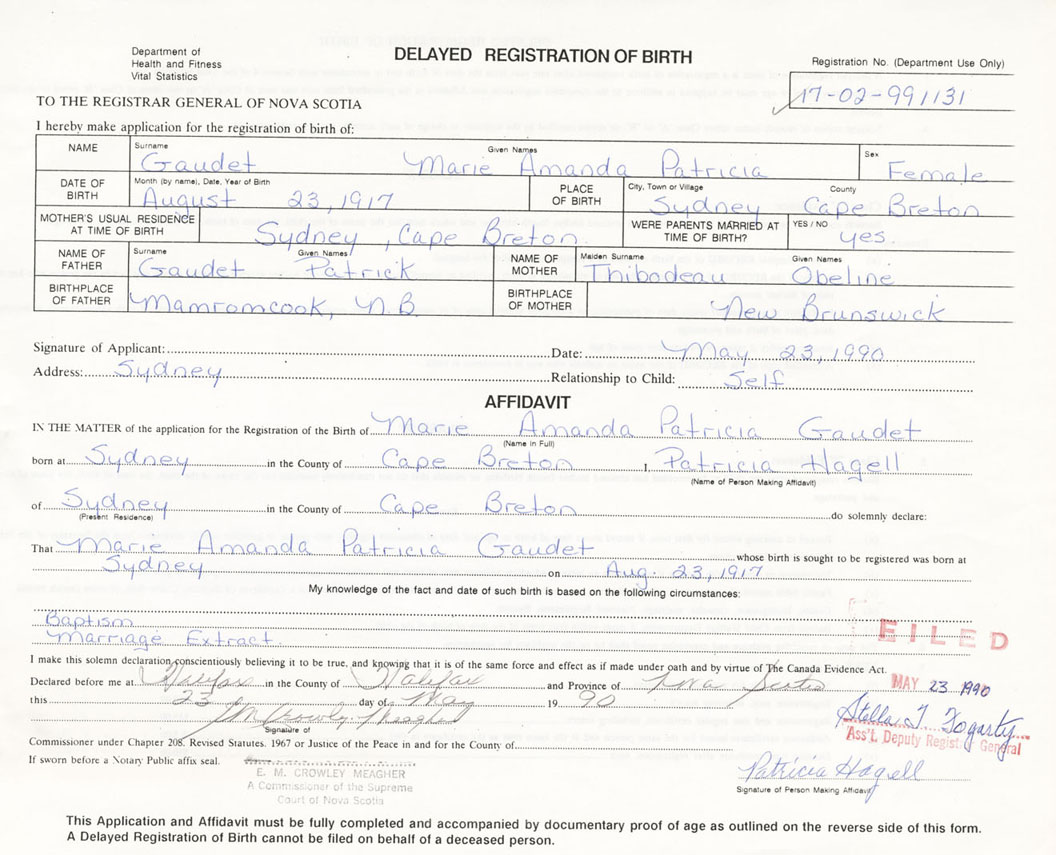 Department of
Health and Fitness
Vital Statistics
DELAYED REGISTRATION OF BIRTH
Registration No. (Department Use Only)
17-02-991131
TO THE REGISTRAR GENERAL OF NOVA SCOTIA
I hereby make application for the registration of birth of:
NAME Surname Given Names Sex
Gaudet Marie Amanda Patricia Female
DATE OF BIRTH Month (by name), Date, Year of Birth PLACE OF BIRTH City, Town or Village County
August 23, 1917 Sydney Cape Breton
MOTHER'S USUAL RESIDENCE AT TIME OF BIRTH Sydney, Cape Breton WERE PARENTS MARRIED AT TIME OF BIRTH? YES / NO yes.
NAME OF FATHER Surname Given Names NAME OF MOTHER Maiden Surname Given Names
Gaudet Patrick Thibodeau Obeline
BIRTHPLACE OF FATHER Mamromcook, N.B BIRTHPLACE OF MOTHER New Brunswick
Signature of Applicant: Date: May 23, 1990
Address: Sydney Relationship to Child: Self
AFFIDAVIT
IN THE MATTER of the application for the Registration of the Birth of Marie Amanda Patricia Gaudet
(Name in Full)
born at Sydney in the County of Cape Breton I, Patricia Hagell
(Name of Person Making Affidavit)
of Sydney in the County of Cape Breton do solemnly declare:
(Present Residence)
That Marie Amanda Patricia Gaudet whose birth is sought to be registered was born at
Sydney on Aug. 23, 1917
My knowledge of the fact and date of such birth is based on the following circumstances:
Baptism
Marriage Extract.
FILED
I make this solemn declaration conscientiously believing it to be true, and knowing that it is of the same force and effect as if made under oath and by virtue of The Canada Evidence Act.
Declared before me at Halifax in the County of Halifax and Province of Nova Scotia
MAY 23 1990
this 23 day of May 1990
EM Crowley Meagher
Signature of
Stella T. Fogarty
Ass'L Deputy Registrar General
Commissioner under Chapter 208, Revised Statutes, 1967 or Justice of the Peace in and for the County of
If sworn before a Notary Public affix seal.
E. M. CROWLEY MEAGHER
A Commissioner of the Supreme
Court of Nova Scotia
Patricia Hagell
Signature of Person Making Affidavit
This Application and Affidavit must be fully completed and accompanied by documentary proof of age as outlined on the reverse side of this form.
A Delayed Registration of Birth cannot be filed on behalf of a deceased person.